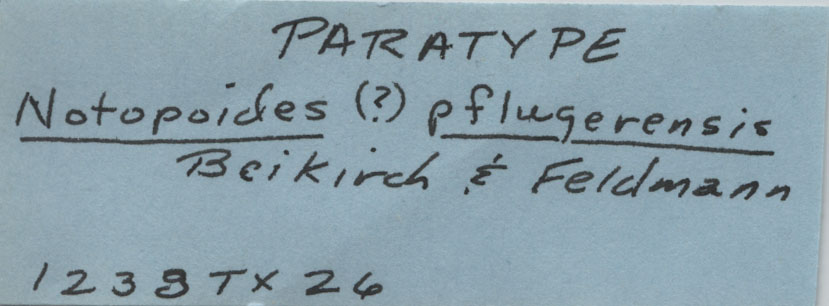 PARATYPE
Notopoides (?) pflugerensis
Beikirch & Feldmann
1238TX26